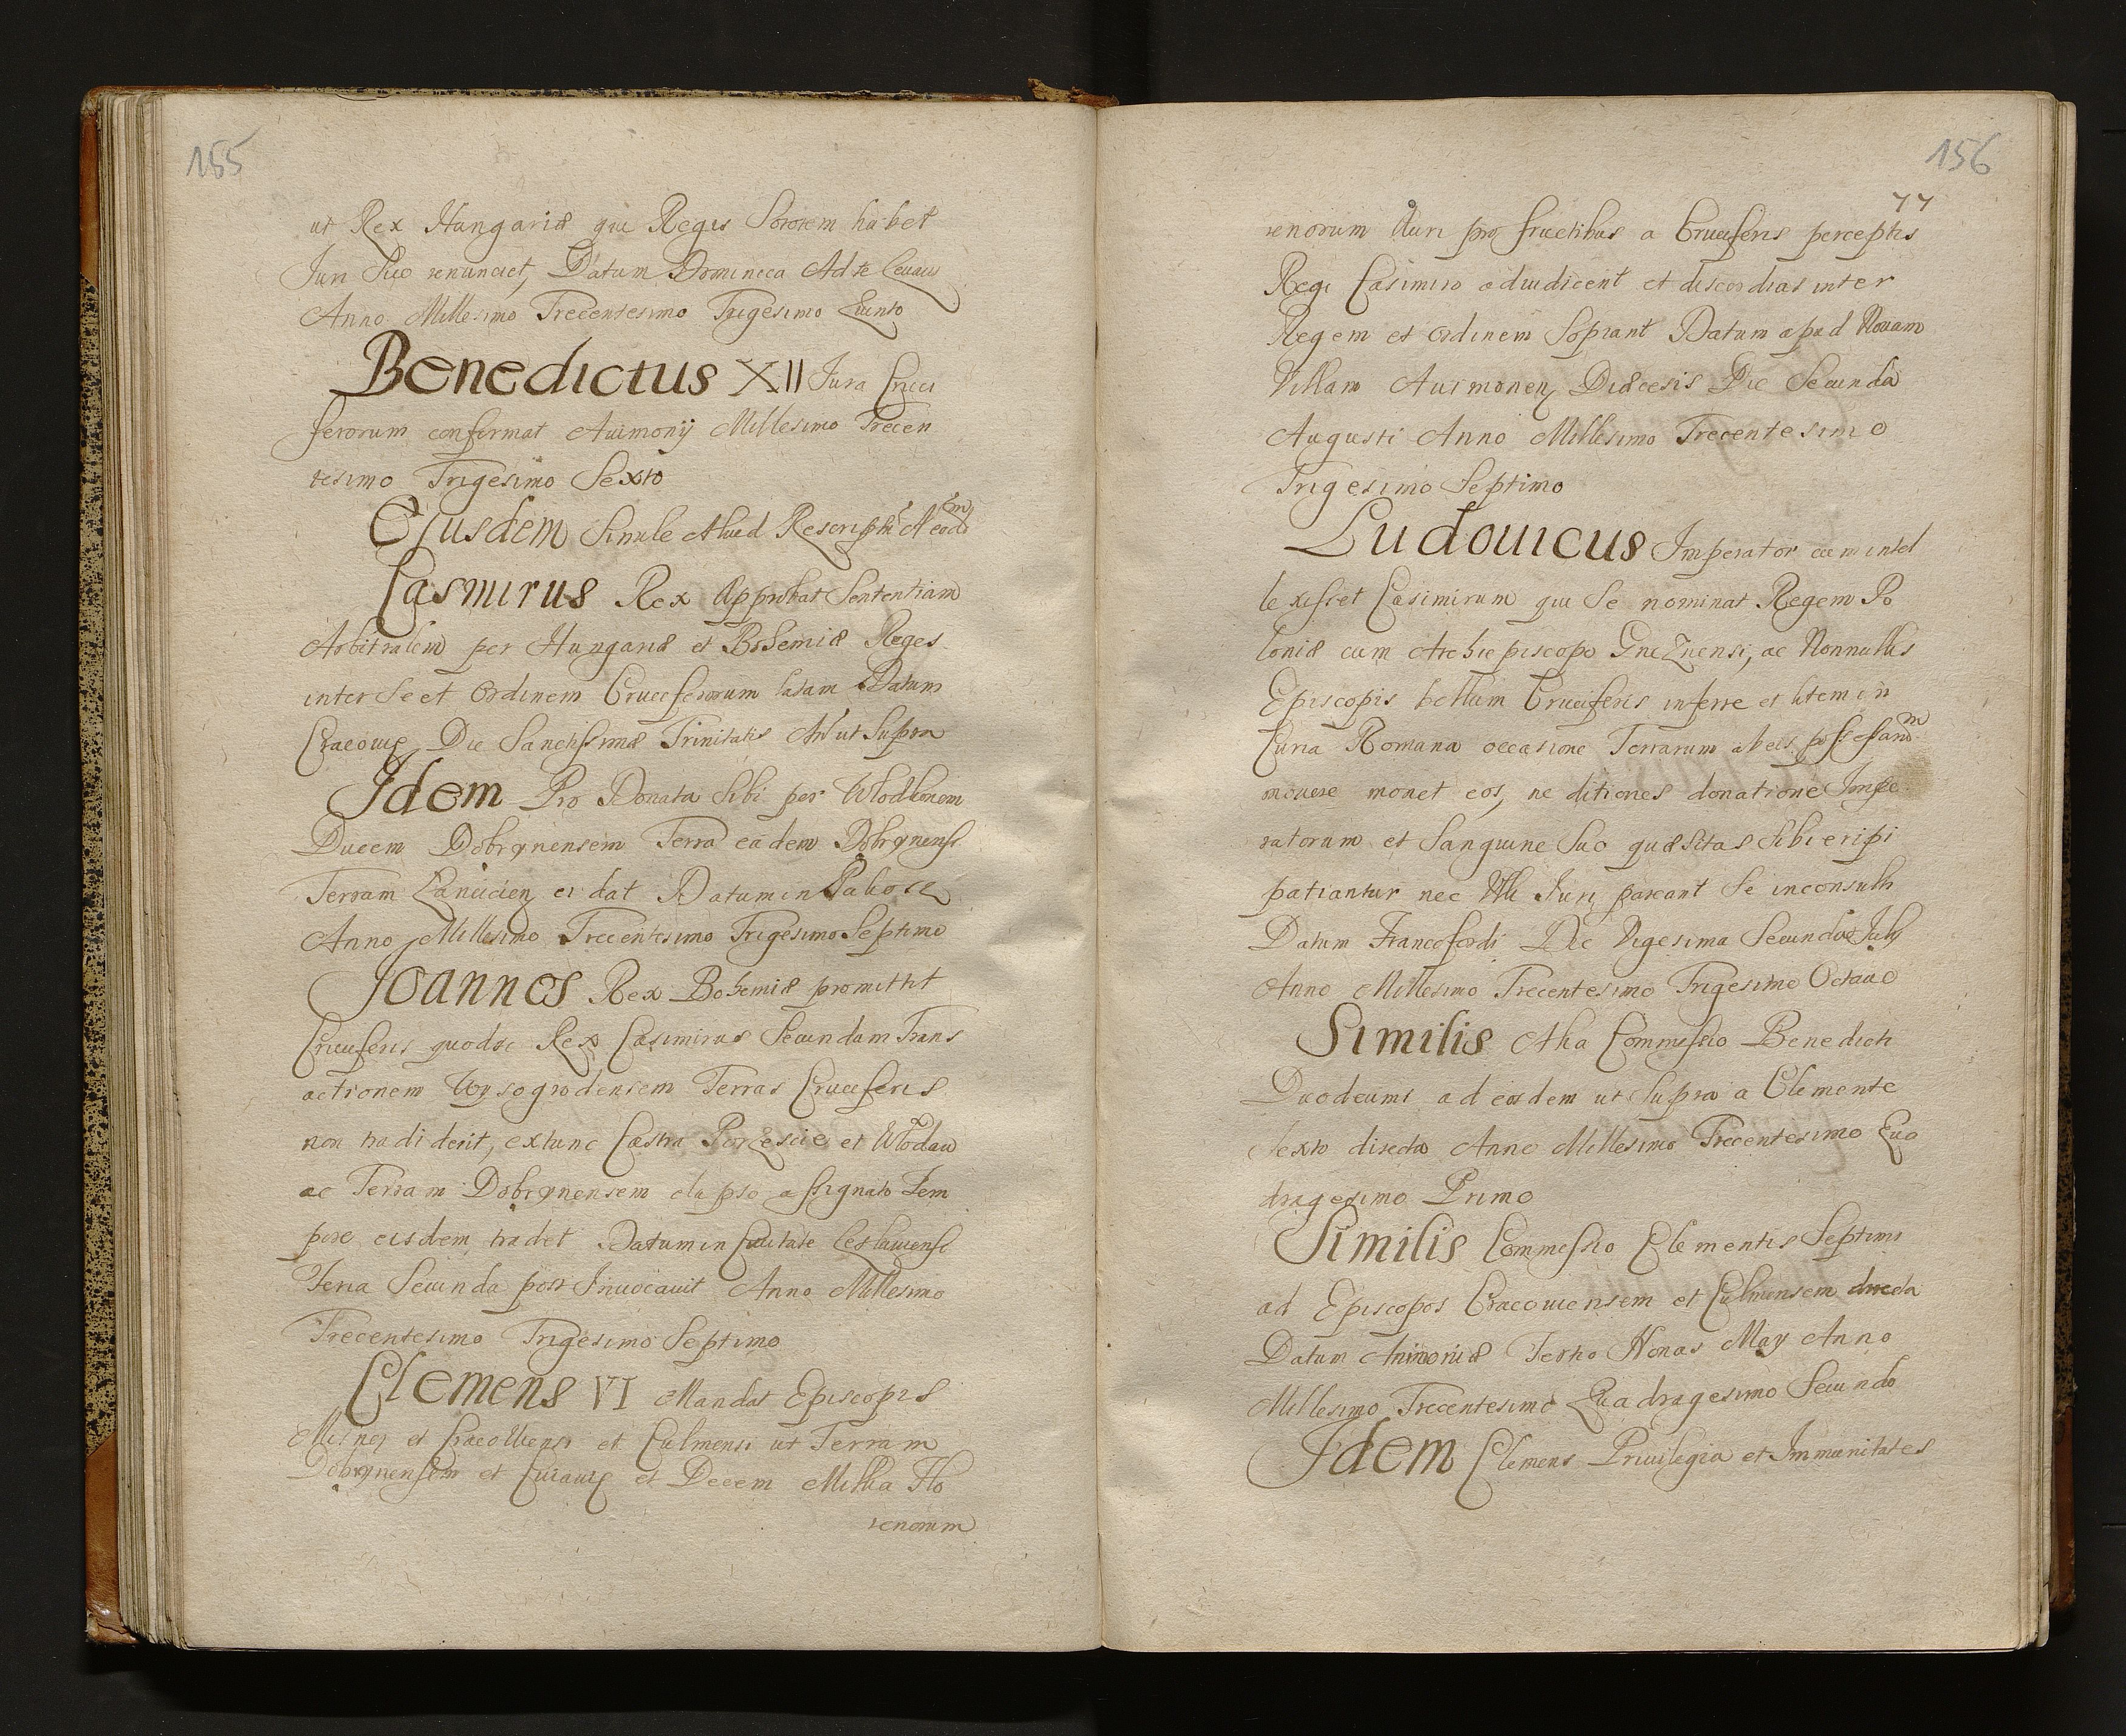 155
ut Rex Hungariæ qui Regis Sororem habet
Juri Suo renunciet, Datum Dominica Ad te levavi
Anno Millesimo Trecentesimo Trigesimo Quinto
Benedictus XII Jura Cruci
ferorum confirmat Auimonij Millesimo Trecen
tesimo Trigesimo Sexto
Ejusdem Simile Aliud Rescriptũ A eodẽ
Casmirus Rex Approbat Sententiam
Arbitralem per Hungariæ et Bohemiæ Reges
inter Se et Ordinem Cruciferorum latam Datum
Cracouię Die Sanctissimæ Trinitatis Aº ut Supra
Idem Pro Donata Sibi per Wlodkonem
Ducem Dobrynensem Terra eadem Dobrynensi
Terram Lancicien ei dat Datum in Pakosz
Anno Millesimo Trecentesimo Trigesimo Septimo
Joannes Rex Bohemiæ promittit
Cruciferis quodsi Rex Casimirus Secundam Trans
actionem Wysogrodensem Terras Cruciferis
non tradiderit, extunc Castra Perzescie et Wlodau
ac Terram Dobrynensem elapso assignato Tem
pore eisdem tradet Datum in Ciuitate Leslauiensi
Feria Secunda post Inuocauit Anno Millesimo
Trecentesimo Trigesimo Septimo
Clemens VI Mandat Episcopis
Misnen et Cracouiensi et Culmensi ut Terram
Dobrynensem et Cuiauię et Decem Millia Flo
renorum
156
77
renorum Auri pro fructibus a Cruciferis perceptis
Regi Casimiro adiudicent et discordias inter
Regem et Ordinem Sopiant Datum apud Nouam
Villam Auimonen Diæcesis Die Secunda
Augusti Anno Millesimo Trecentesimo
Trigesimo Septimo
Ludouicus Imperator cum intel
lexisset Casimirum qui Se nominat Regem Po
loniæ cum Archiepiscopo Gneznensi, ac Nonnullis
Episcopis bellum Cruciferis inferre et litem in
Curia Romana occasione Terrarum ab eis possessarũ
mouere monet eos, ne ditiones donatione Impe
ratorum et Sanguine Suo quæsitas Sibi eripi
patiantur nec Ulli Juri pareant Se inconsulti
Datum Francofordi Die Vigesima Secunda Julij
Anno Millesimo Trecentesimo Trigesimo Octauo
Similis Alia Commissio Benedicti
Duodecimi ad eosdem ut Supra a Clemente
Sexto directa Anno Millesimo Trecentesimo Qua
dragesimo Primo
Similis Commissio Clementis Septimi
ad Episcopos Cracouiensem et Culmensem directa
Datum Auinioniæ Tertio Nonas May Anno
Millesimo Trecentesimo Quadragesimo Secundo
Idem Clemens Priuilegia et Immunitates